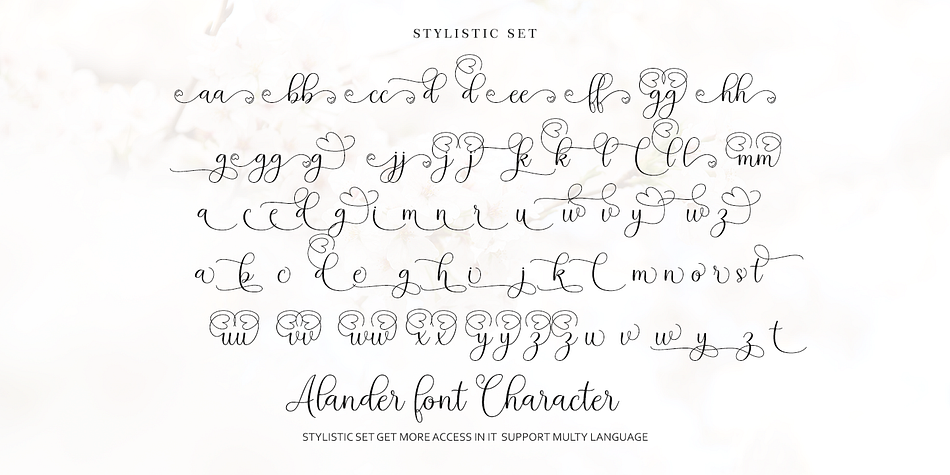 STYLISTIC SET
aa bb cc d d ee ff gg hh
g e g g g jj j j k k l l l l mm
a c e d g i m n r u w v y w z
a b c d e g h i j k l m n o r s t
uu vv ww x x y y z z u v w y z t
Alander font Character
STYLISTIC SET GET MORE ACCESS IN IT SUPPORT MULTY LANGUAGE